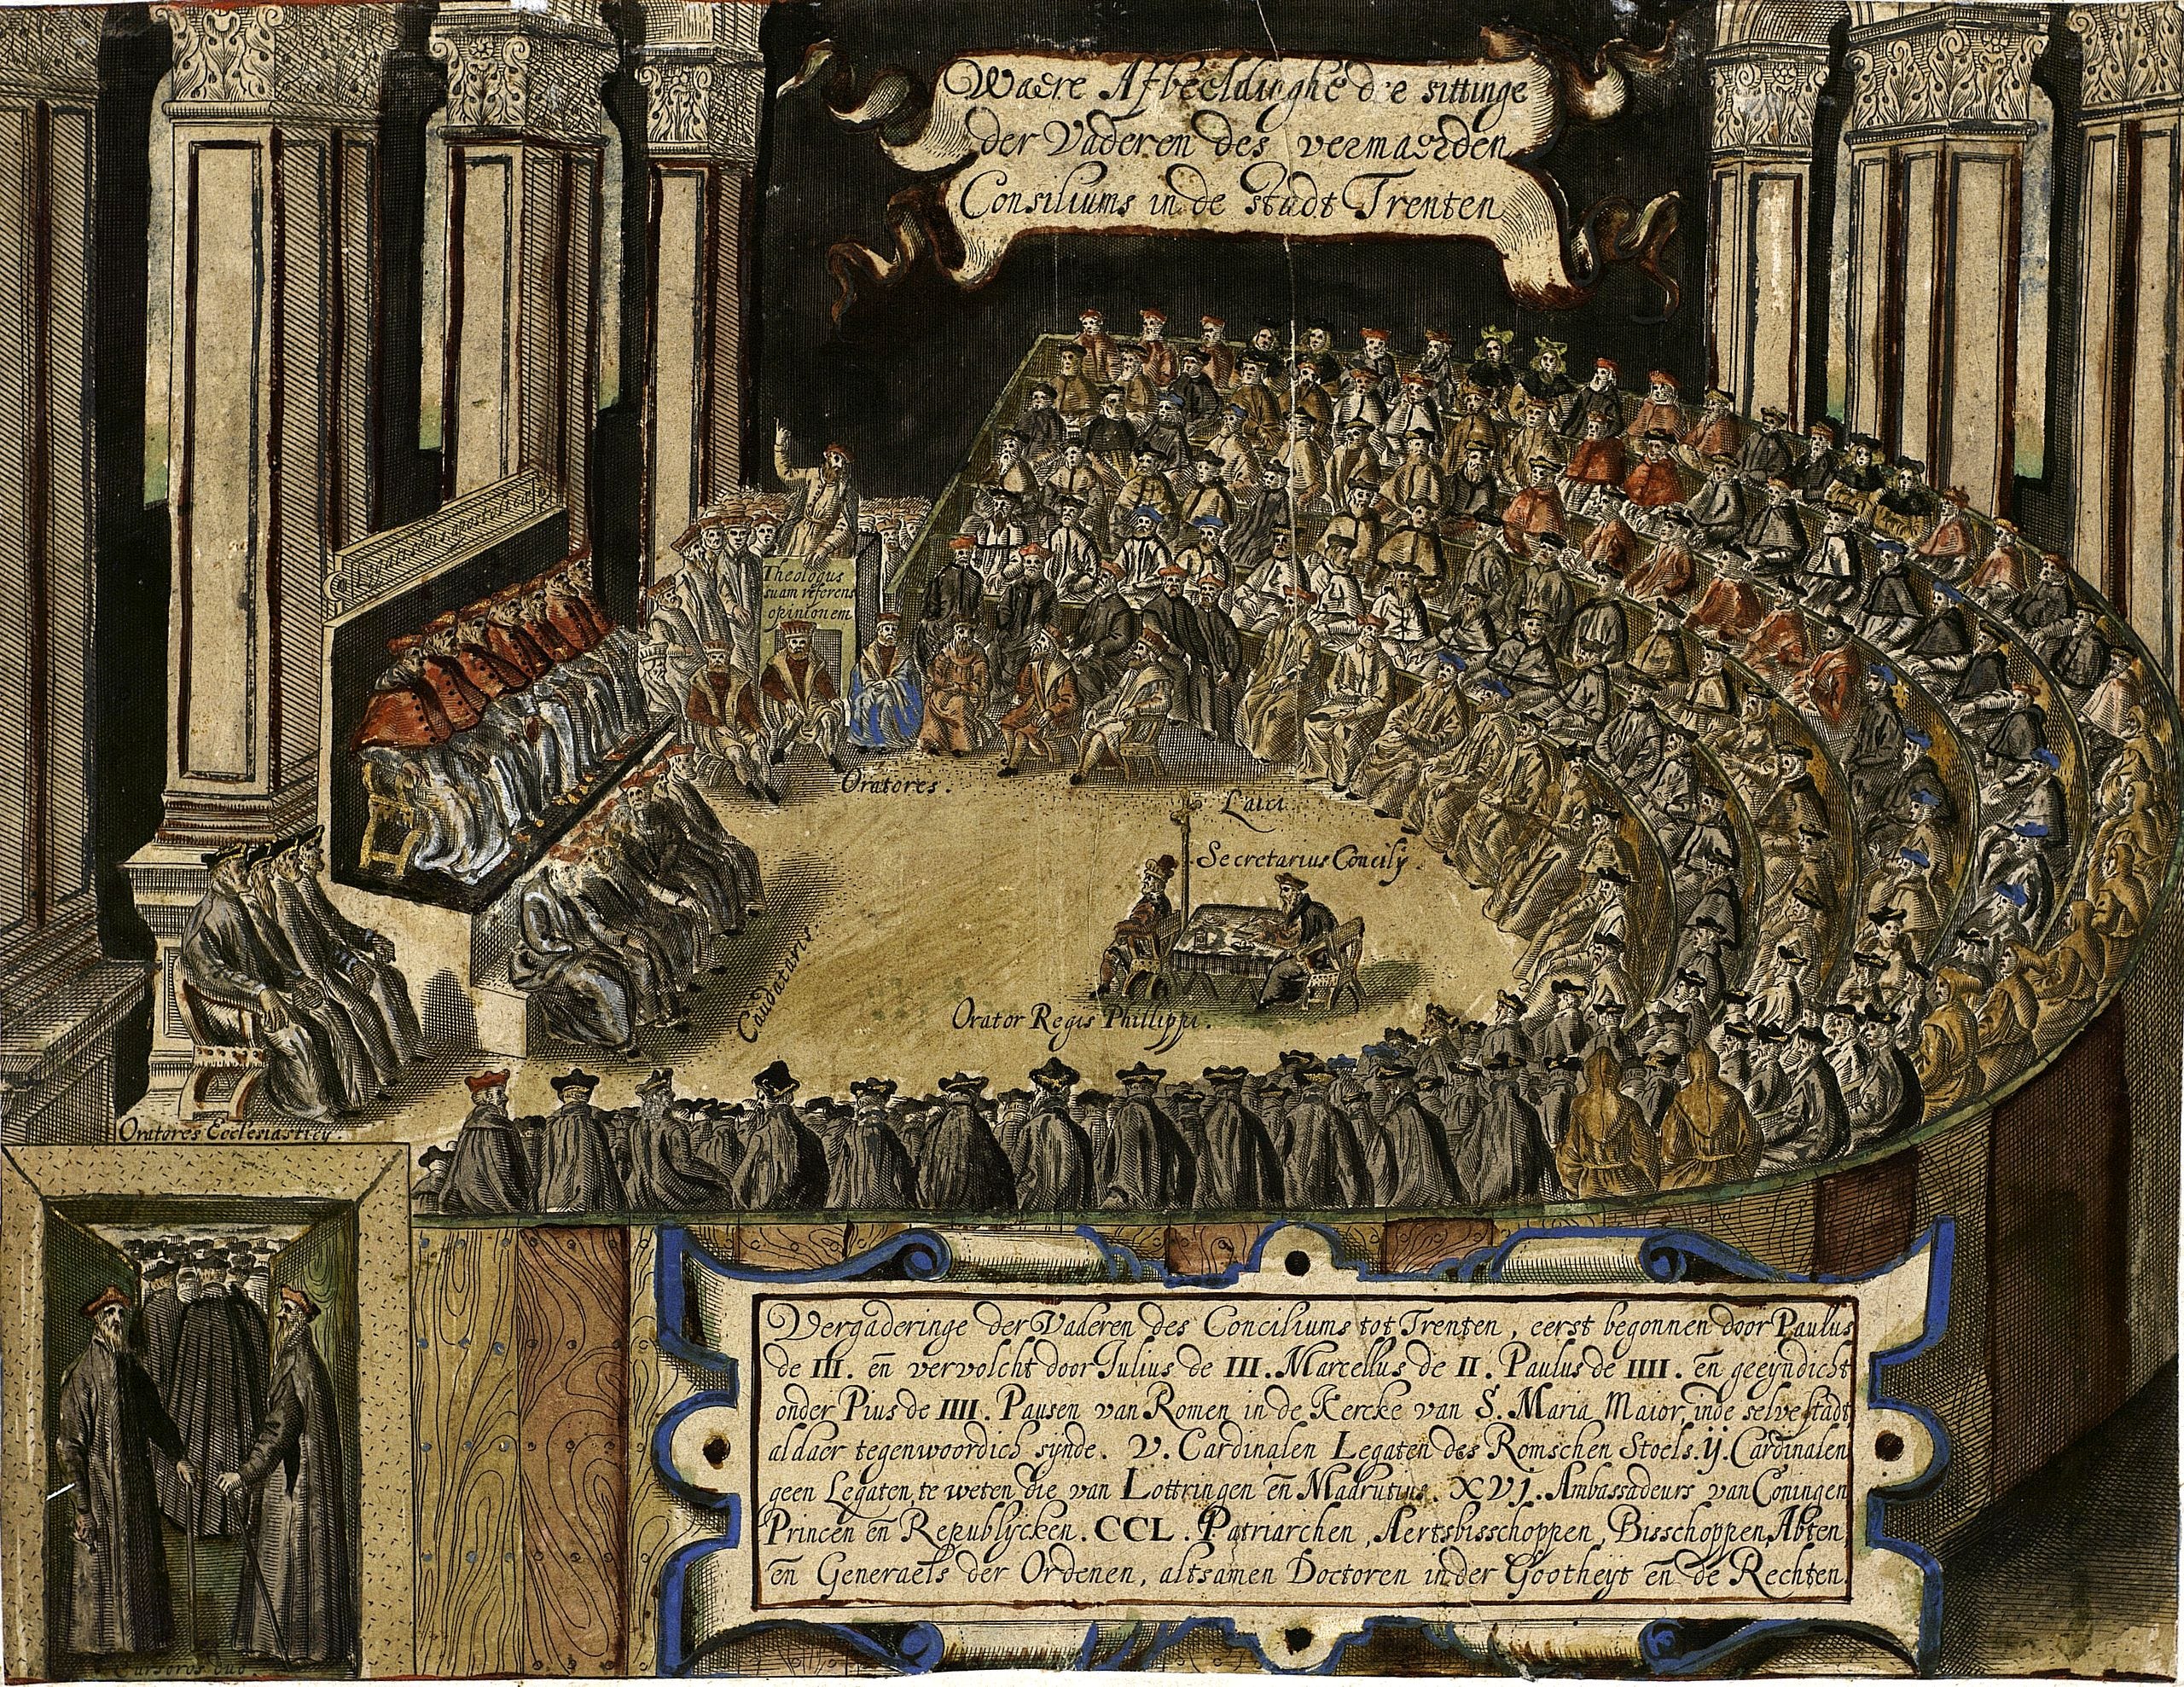 Waere Afbeeldinghe d'e sittinge
der Vaderen des vermaerden
Consiliums in de stadt Trenten
Theologus
suam referens
opinionem
Oratores.
Laici
Secretarius Concilÿ
Caudataris.
Orator Regis Phillippi.
Oratores Ecclesiasticÿ.
Cursoros duo
Vergaderinge der Vaderen des Conciliums tot Trenten, eerst begonnen door Paulus
de III. en̄ vervolcht door Iulius de III. Marcellus de II. Paulus de IIII. en̄ geeyndicht
onder Pius de IIII. Pausen van Romen in de Kercke van S. Maria Maior, inde selve stadt
aldaer tegenwoordich synde. V. Cardinalen Legaten des Romschen Stoels. ij. Cardinalen
geen Legaten, te weten die van Lottringen en̄ Madrutius. XVI. Ambassadeurs van Coningen
Princen en̄ Republÿcken. CCL. Patriarchen, Aertsbisschoppen, Bisschoppen, Abten,
en̄ Generaels der Ordenen, altsamen Doctoren in der Gootheyt en̄ de Rechten.